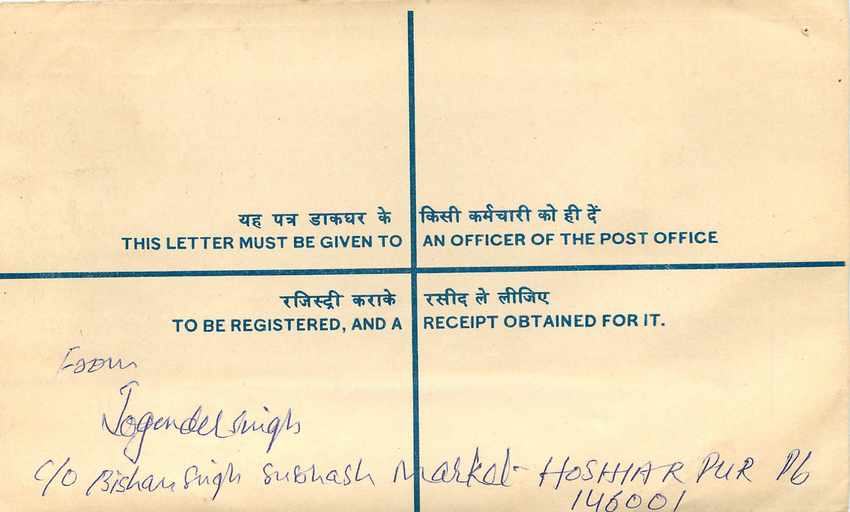 यह पत्र डाकघर के किसी कर्मचारी को ही दें
THIS LETTER MUST BE GIVEN TO AN OFFICER OF THE POST OFFICE
रजिस्ट्री कराके रसीद ले लीजिए
TO BE REGISTERED, AND A RECEIPT OBTAINED FOR IT.
From
Jogender Singh
C/O Bishan Singh Subhash Market- HOSHIAR PUR Pb
146001